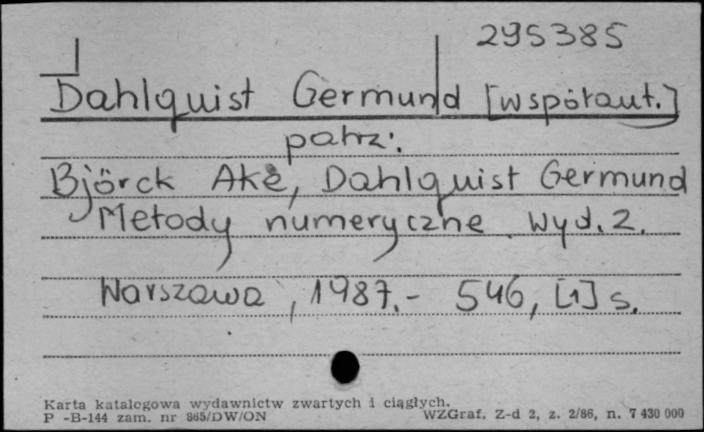 295385
Dahlquist Germund [współaut.]
patrz:
Björck Akè, Dahlquist Germund
Metody numeryczne. Wyd. 2.
Warszawa, 1987.- 546, [1] s.
Karta katalogowa wydawnictw zwartych i ciągłych.
P -B-144 zam. nr 865/DW/ON WZGraf. Z-d 2, z. 2/86, n. 7 430 000